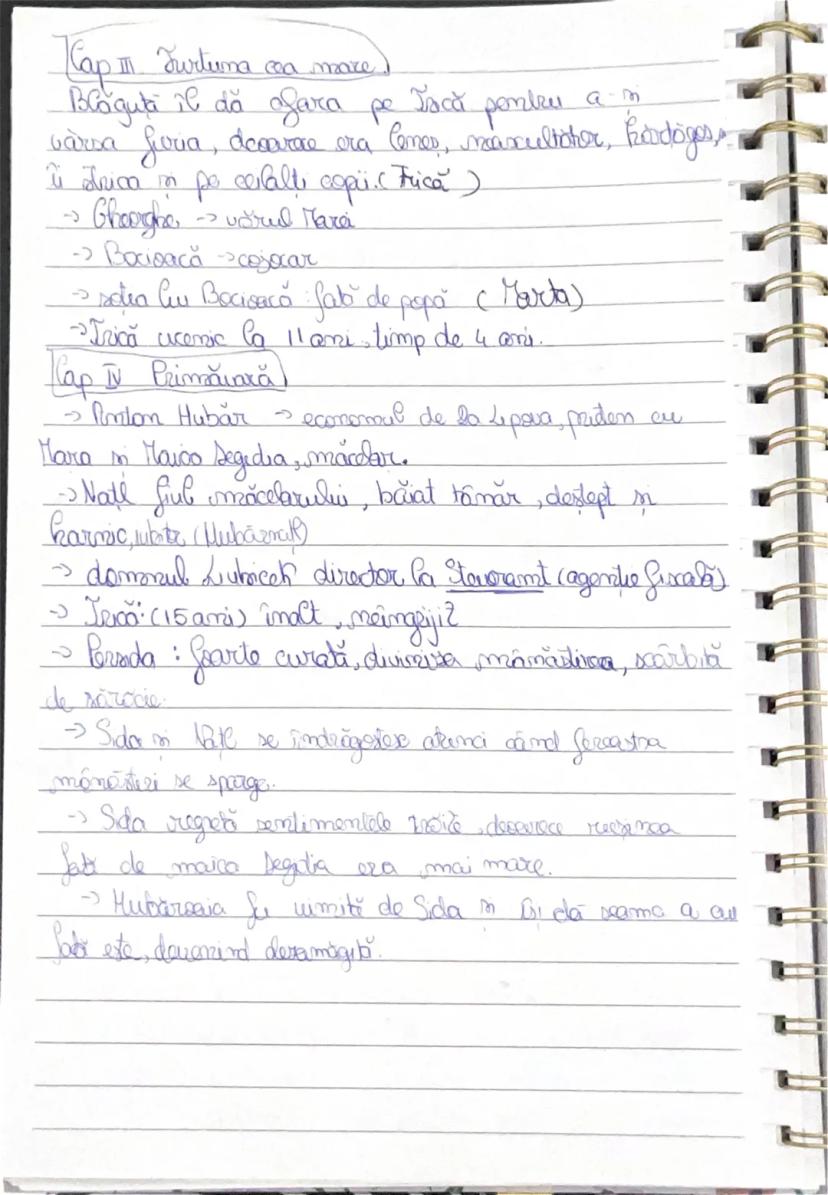 Cap III Furtuna cea mare
Blăguță îl dă afara pe Trică pentru a-și
vărsa furia, deoarece era leneș, neascultător, hărdăgos,
îi strica și pe ceilalți copii. (Frică)
-> Gheorghe -> vărul Marei
-> Bocioacă -> cojocar
-> soția lui Bocioacă: fată de popă (Marta)
-> Trică ucenic la 11 ani, timp de 4 ani.
Cap IV Primăvară
-> Anton Hubăr -> economul de la Lipova, prieten cu
Mara și Maica Aegidia, măcelar.
-> Națl fiul măcelarului, băiat tânăr, deștept și
harnic, iubitor (Hubărnațl)
-> domnul Lubicek director la (agenție fiscală)
-> Trică: (15 ani) înalt, neîngrijit
-> Persida: foarte curată, mănăstirea, scârbită
de sărăcie.
-> Sida și Națl se îndrăgostesc atunci când fereastra
mănăstirii se sparge.
-> Sida regretă sentimentele trăite, deoarece rușinea
față de maica Aegidia era mai mare.
-> Hubăroaia fu uimită de Sida și își dă seama a cui
fată este, devenind dezamăgită.